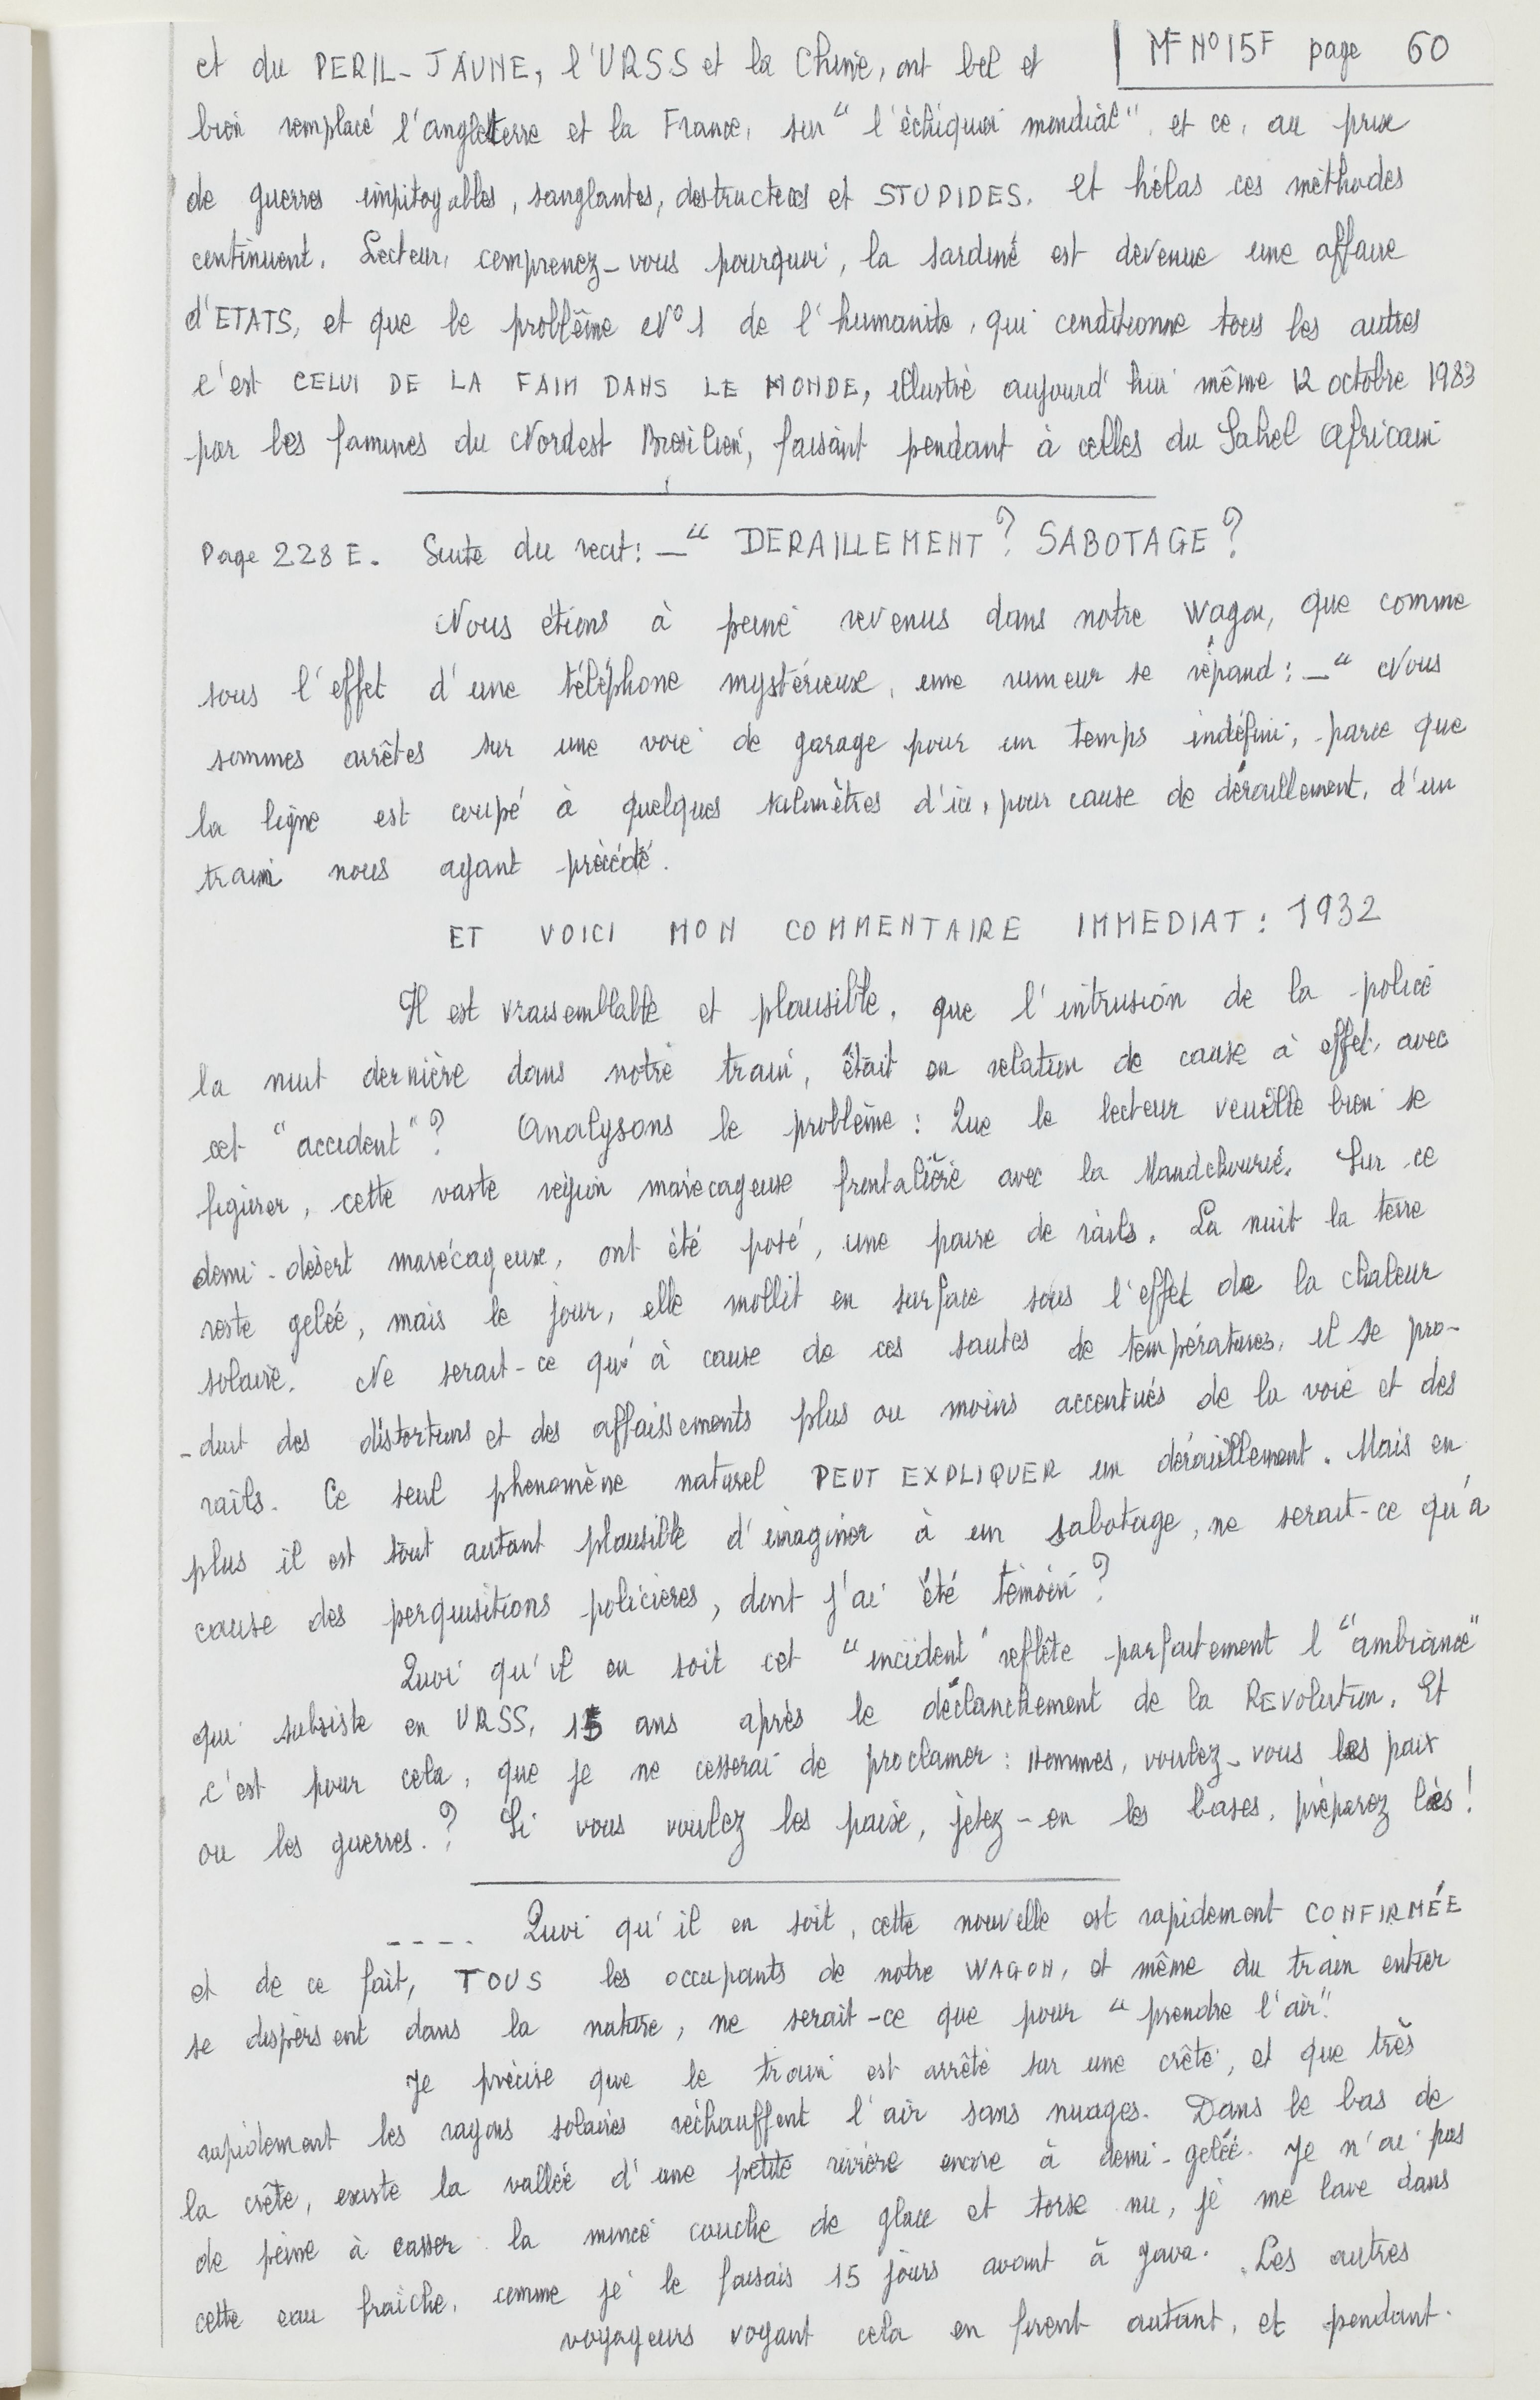 MF N° 15F page 60
et du PERIL-JAUNE, l'URSS et la Chine, ont bel et
bien remplacé l'angleterre et la France, sur "l'échiquier mondial", et ce, au prix
de guerres impitoyables, sanglantes, destructices et STUPIDES. Et hélas ces méthodes
continuent. Lecteur, comprenez-vous pourquoi, la sardine est devenue une affaire
d'ETATS, et que le problème N°1 de l'humanité, qui conditionne tous les autres
c'est CELUI DE LA FAIM DANS LE MONDE, illustré aujourd'hui même 12 octobre 1983
par les famines du Nordest Brésilien, faisant pendant à celles du Sahel Africain
Page 228 E. Suite du recit: _" DERAILLEMENT? SABOTAGE?
Nous étions à peine revenus dans notre wagon, que comme
sous l'effet d'une téléphone mystérieux, une rumeur se répand: _" Nous
sommes arrêtés sur une voie de garage pour un temps indéfini, parce que
la ligne est coupé à quelques kilomètres d'ici, pour cause de déraillement, d'un
train nous ayant précédé.
ET VOICI MON COMMENTAIRE IMMEDIAT: 1932
Il est vraisemblable et plausible, que l'intrusion de la police
la nuit dernière dans notre train, était en relation de cause à effet, avec
cet "accident"? Analysons le problème: Que le lecteur veuille bien se
figurer, cette vaste région marécageuse frontalière avec la Mandchourie. Sur ce
demi-désert marécageux, ont été posé, une paire de rails. La nuit la terre
reste gelée, mais le jour, elle mollit en surface sous l'effet de la chaleur
solaire. Ne serait-ce qu'à cause de ces sautes de températures, il se pro-
-duit des distortions et des affaissements plus ou moins accentués de la voie et des
rails. Ce seul phenomène naturel PEUT EXPLIQUER un déraillement. Mais en
plus il est tout autant plausible d'imaginer à un sabotage, ne serait-ce qu'à
cause des perquisitions policières, dont j'ai été témoin?
Quoi qu'il en soit cet "incident" reflête parfaitement l'"ambiance"
qui subsiste en URSS, 15 ans après le déclanchement de la REVolution. Et
c'est pour cela, que je ne cesserai de proclamer: Hommes, voulez-vous les paix
ou les guerres.? Si vous voulez les paix, jetez-en les bases, préparez les!
---- Quoi qu'il en soit, cette nouvelle est rapidement CONFIRMÉE
et de ce fait, TOUS les occupants de notre WAGON, et même du train entier
se dispersent dans la nature, ne serait-ce que pour "prendre l'air".
Je précise que le train est arrêté sur une crête, et que très
rapidement les rayons solaires réchauffent l'air sans nuages. Dans le bas de
la crête, existe la vallée d'une petite rivière encore à demi-gelée. Je n'ai pas
de peine à casser la mince couche de glace et torse nu, je me lave dans
cette eau fraîche, comme je le faisais 15 jours avant à Java. Les autres
voyageurs voyant cela en firent autant, et pendant.